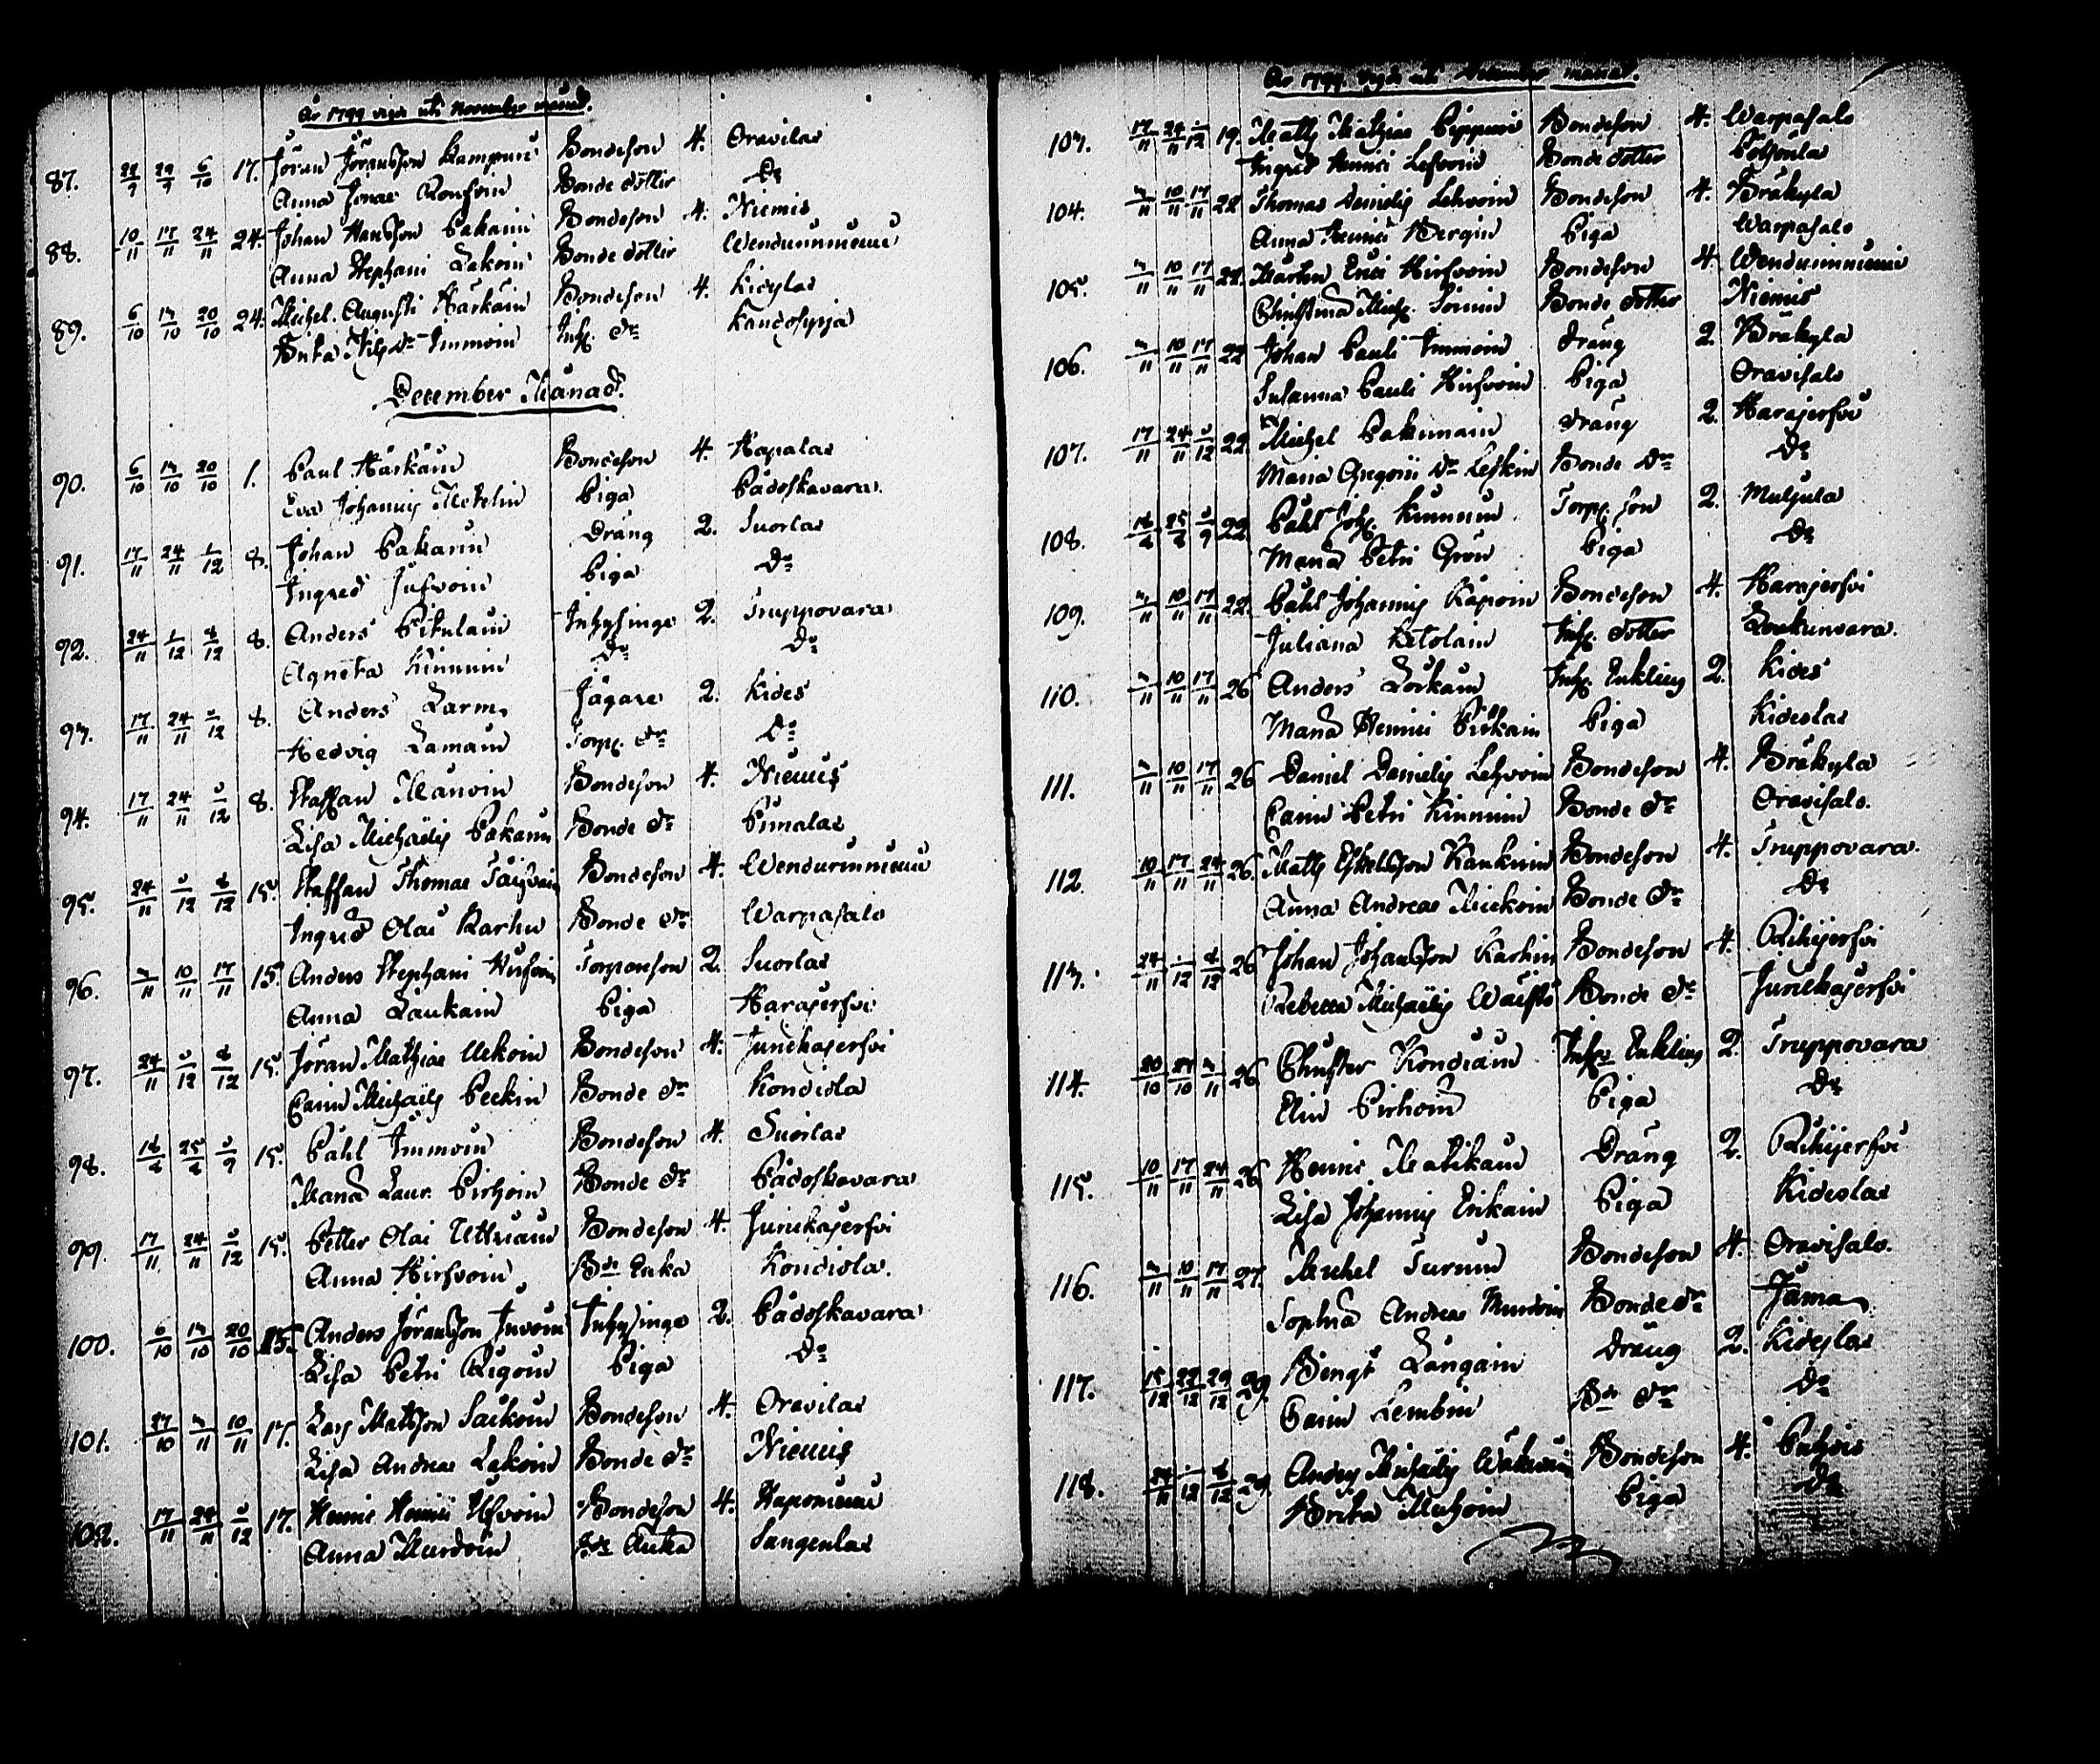 År 1799 vigde uti November månad.
87. 22/9 29/9 6/10 17. Jöran Jöransson Bondeson 4. Oravilax
Anna Jonae Ronfvoin Bonde dotter Do
88. 10/11 17/11 24/11 24. Johan Hansson Pakarin Bondeson 4. Niemis
Anna Stephani Lakoin Bonde dotter Wendurinniemi
89. 6/10 13/10 20/10 24. Michel Augusti Harkain Bondeson 4. Kidejlax
Brita Nils dr Immoin Inh. dr Kandosyrja
December Månad.
90. 6/10 13/10 20/10 1. Paul Harkain Bondeson 4. Hapalax
Eva Johannis Mekelin Piga Padoskavara.
91. 17/11 24/11 1/12 8. Johan Pakarin Dräng 2. Suorlax
Ingred Jufvoin Piga Do
92. 24/11 1/12 8/12 8. Anders Pitulain Inhysinge 2. Truppovara
Agneta Kinnunin Do Do
93. 17/11 24/11 /12 8. Anders Larm Jägare 2. Kides
Hedvig Lamain Torp. dr Do
94. 17/11 24/11 /12 8. Staffan Manoin Bondeson 4. Niemis
Lisa Michaëlis Pakarin Bonde dr Pimalax
95. 24/11 /12 /12 15. Staffan Thomae Bondeson 4. Wendurinniemi
Ingred Olai Karhu Bonde dr Warpasalo
96. /11 10/11 17/11 15. Anders Stephani Hirfvoin Torpareson 2. Suorlax
Anna Laukain Piga Harajerfvi
97. 24/11 /12 /12 15. Jöran Mathiae Uekoin Bondeson 4. Junckajerfvi
Carin Michaëlis Peckin Bonde dr Kondiola
98. 18/8 25/8 /9 15. Påhl Immoin Bondeson 4. Suorlax
Maria Laur. Pirhoin Bonde dr Padoskavara
99. 17/11 24/11 /12 15. Petter Olai Uttriain Bondeson 4. Junckajerfvi
Anna Hirfvoin Bde Enka Kondiola.
100. 6/10 13/10 20/10 15. Anders Jöransson Juvoin Inhysinge 2. Padoskavara
Lisa Petri Rigoin Piga Do
101. 27/10 3/11 10/11 17. Lars Mattsson Saikoin Bondeson 4. Oravilax
Lisa Andreae Lakoin Bonde dr Niemis
102. 17/11 24/11 /12 17. Henric Henrici Bondeson 4. Haponiemi
Anna Murdoin Bde Enka Sangenlax
År 1799 vigde uti December månad.
103. 17/11 24/11 1/12 19. Matts Mathiae Pippuri Bondeson 4. Warpasalo
Ingred Henrici Lefvoin Bonde dotter Potsonla
104. 3/11 10/11 17/11 22 Thomas Danielis Lehvoin Bondeson 4. Bräkyla
Anna Henrici Bergin Piga Warpasalo
105. 3/11 10/11 17/11 22. Mårten Erici Hirfvoin Bondeson 4. Wendurinniemi
Christina Mich. Bonde dotter Niemis
106. 3/11 10/11 17/11 22 Johan Pauli Immoin Dräng 2. Bräkyla
Susanna Pauli Hirfvoin Piga Oravisalo
107. 17/11 24/11 /12 22. Michel Pakunain Dräng 2. Harajerfvi
Maria Gregorii dr Leskin Bonde dr Do
108. 18/8 25/8 /9 22 Påhl Joh. Kinnunin Torp. son 2. Muljula
Maria Petri Grön Piga Do
109. 3/11 10/11 17/11 22. Påhl Johannis Kapoin Bondeson 4. Harajerfvi
Juliana Ketolain Inh. dotter Loukunvara.
110. 3/11 10/11 17/11 26 Anders Lorkain Inh. Enkling 2. Kides
Maria Henrici Pitkain Piga Kideslax
111. 3/11 10/11 17/11 26 Daniel Danielis Lehvoin Bondeson 4. Bräkyla
Carin Petri Kinnunin Bonde dr Oravisalo.
112. 10/11 17/11 24/11 26. Matts Eskelsson Kaukunin Bondeson 4. Truppovara.
Anna Andreae Mickoin Bonde dr Do
113. 24/11 1/12 8/12 26 Johan Johansson Karhin Bondeson 4. Rihijerfvi
Rebecca Michaëlis Bonde dr Junckajerfvi
114. 20/10 27/10 3/11 26 Christer Kondiain Inhys Enkling 2. Truppovara
Elin Pirhoin Piga Do
115. 10/11 17/11 24/11 26 Henric Matikain Dräng 2. Rihijerfvi
Lisa Johannis Erikain Piga Kideslax
116. 3/11 10/11 17/11 27. Michel Turunin Bondeson 4. Oravisalo.
Sophia Andreae Murdoin Bonde dr Jama
117. 15/12 22/12 29/12 29. Bengt Langain Dräng 2. Kidejlax
Carin Lembin Bde dr Do
118. 24/11 1/12 8/12 29. Anders Michaëlis Bondeson 4. Puhois
Brita Muhoin Piga Do